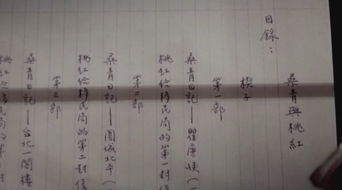 桑青與桃紅
目錄：
楔子
第一部
桑青日記——瞿唐峽（
桃紅給移民局的第一封信
第二部
桑青日記——圍城北平（
桃紅給移民局的第二封信
第三部
桑青日記——台北一閣樓